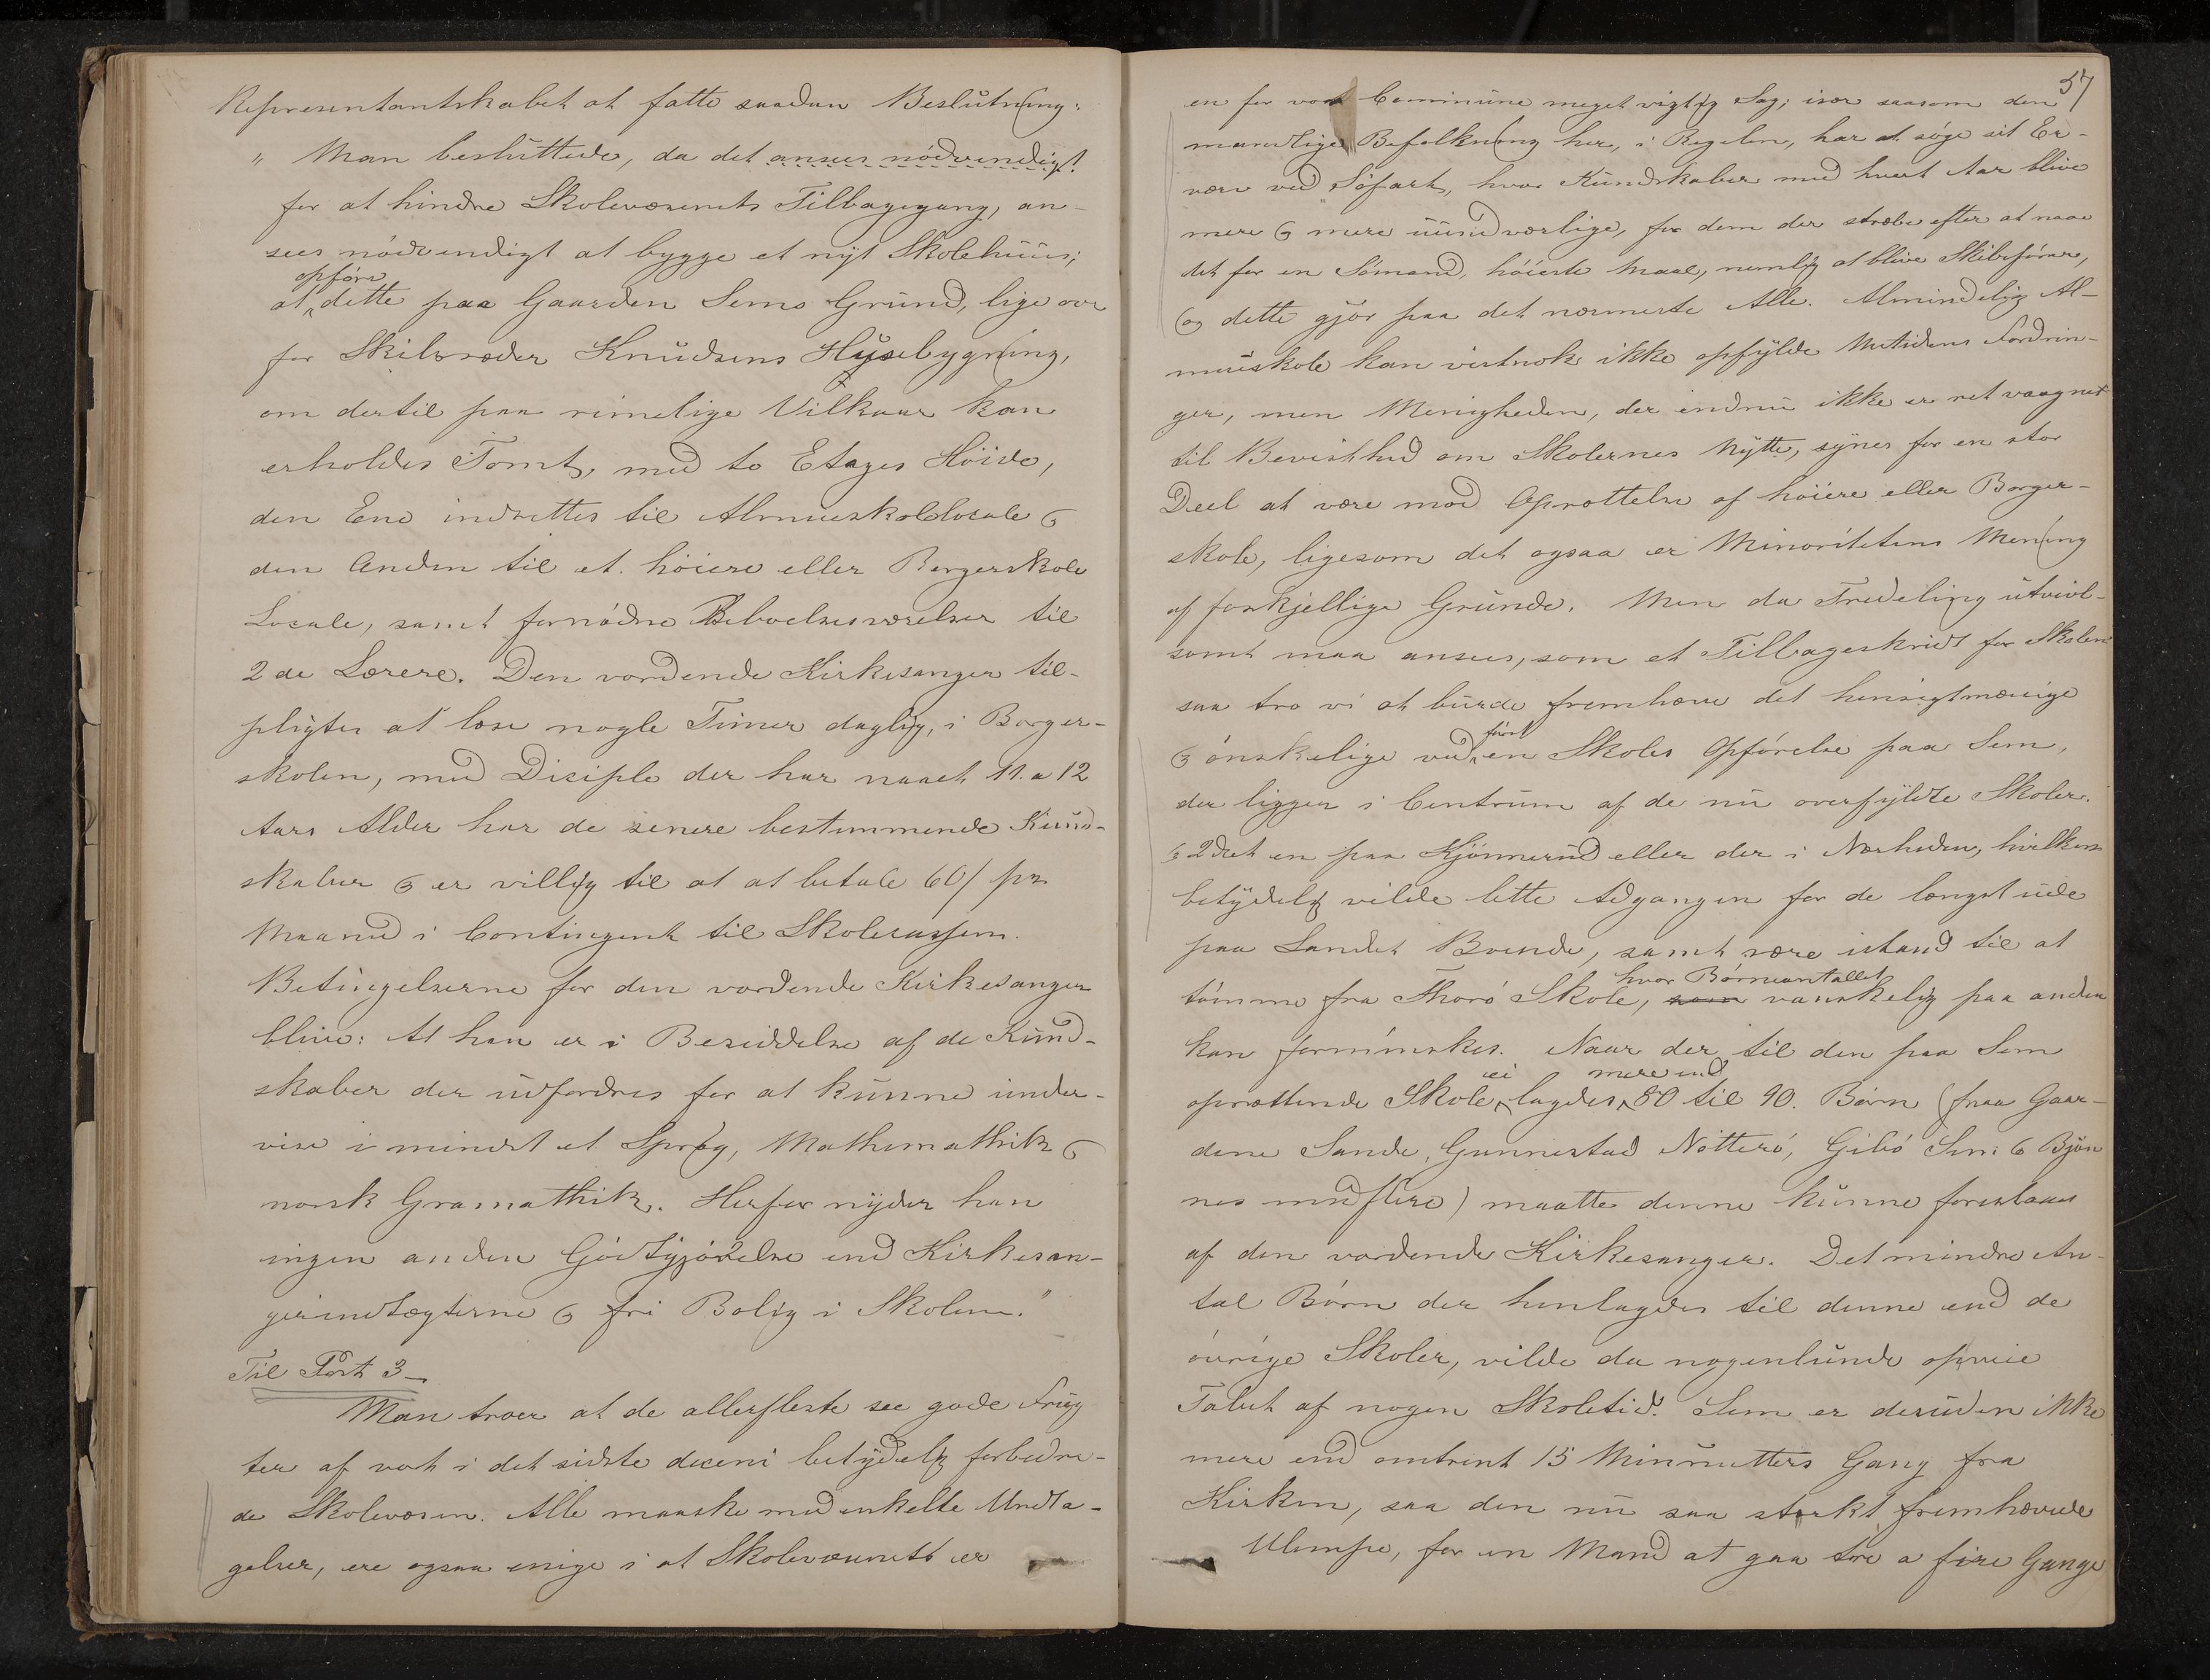 Representantskabet at fatte saadan Beslutning:
„ Man besluttede, da det ansees nödvendigt
for at hindre Skolevæsenets Tilbagegang, an-
sees nödvendigt at bygge et nyt Skolehuus;
opföre
at dette paa Gaarden Sems Grund, lige over
for Skibsreder Knudsens Huusebygning,
om dertil paa rimelige Vilkaar kan
erholdes Tomt, med to Etages Höide,
den Ene indrettes til Almueskolelocale og
den Anden til et höiere eller Borgerskole
Locale, samt fornödne Beboelsesværelser til
2de Lærere. Den vordende Kirkesanger til-
pligtes at læse nogle Timer daglig, i Borger-
skolen, med Disiple der har naaet 11 a 12
Aars Alder har de senere bestemmende Kund-
skaber og er villig til at at betale 60 / pr
Maaned i Contingent til Skolecassen.
Betingelserne for den vordende Kirkesanger
blive: At han er i Besiddelse af de Kund-
skaber der udfordres for at kunne under-
vise i mindst et Sprog, Mathemathik og
norsk Gramathik. Herfor nyder han
ingen anden Godtgjörelse end Kirkesan-
gerindtægterne og fri Bolig i Skolen."
Til Post 3
Man troer at de allerfleste see gode Frug
ter af vort i det sidste deceni betydelig forbedre-
de Skolevæsen. Alle maaske med enkelte Undta-
gelser, ere ogsaa enige i at Skolevæsenet er
57
en for vor Commune meget vigtig Sag; især saasom den
mandlige Befolkning her, i Regelen, har at söge sit Er-
værv ved Söfart, hvor Kundskaber med hvert Aar blive
mere og mere uundværlige, for dem der stræbe efter at naae
det for en Sömand höieste Maal, nemlig at blive Skibsförer,
og dette gjör paa det nærmeste Alle. Almindelig Al-
mueskole kan vistnok ikke opfylde Nutidens Fordrin-
ger, men Menigheden, der endnu ikke er ret vaagnet
til Bevisthed om Skolernes Nytte, synes for en stor
Deel at være mod Oprettelse af höiere eller Borger-
skole, ligesom det ogsaa er Minoritetens Mening
af forskjellige Grunde. Men da Tredeling utvivl-
somt maa ansees, som et Tilbageskridt for Skolen
saa tro vi at burde fremhæve det hensigtmæssige
först
og önskelige ved en Skoles Opförelse paa Sem,
der ligger i Centrum af de nu overfyldte Skoler.
og 2det en paa Kjönnerud eller der i Nærheden, hvilken
betydelig vilde lette Adgangen for de længst ude
paa Landet Boende, samt være istand til at
hvor Börneantallet
tömme fra Thorö Skole, som vanskelig paa anden
kan formindskes. Naar der til den paa Sem
ei mere end
oprettende Skole lagdes 80 til 90. Börn (fraa Gaar-
dene Sande, Gunnestad Nötterö, Gibö Sem og Bjön
nes med flere) maatte denne kunne forestaaes
af den vordende Kirkesanger. Det mindre An-
tal Börn der henlagdes til denne end de
övrige Skoler, vilde da nogenlunde opveie
Tabet af nogen Skoletid. Sem er desuden ikke
mere end omtrent 15 Minuetters Gang fra
Kirken, saa den nu saa sterkt fremhævede
Ulempe, for en Mand at gaa tre a fire Gange